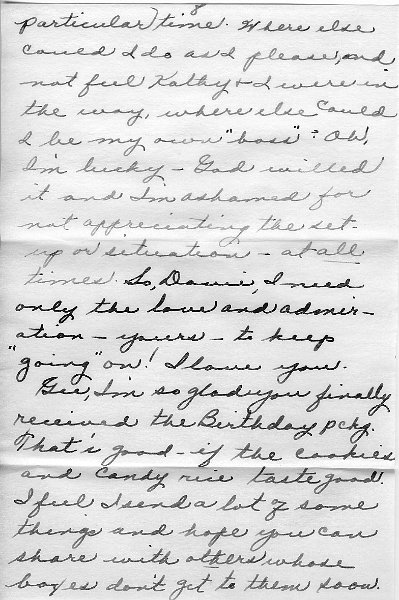 8
particular) time. Where else
could I do as I please and
not feel Kathy & I were in
the way, where else could
I be my own "boss"? Oh,
I'm lucky - God willed
it and I'm ashamed for
not appreciating the set-
up or situation - at all
times. So, Davie, I need
only the love and admir-
ation - yours - to keep
"going" on! I love you.
Gee, I'm so glad you finally
received the Birthday pckg.
That's good - if the cookies
and candy rice taste good.
I feel I send a lot of some
things and hope you can
share with others whose
boxes don't get to them soon.